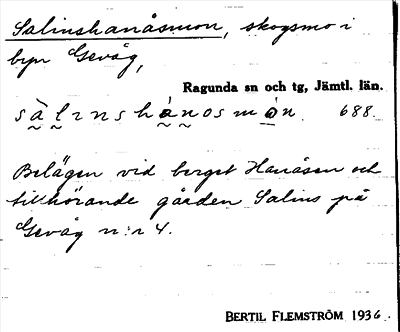 Salinshanåsmon, skogsmo i
byn Gevåg,
Ragunda sn och tg, Jämtl. län.
sàlɩnshánosmòn 688
Belägen vid berget Hanåsen och
tillhörande gården Salins på
Gevåg n:r 4.
BERTIL FLEMSTRÖM 1936.